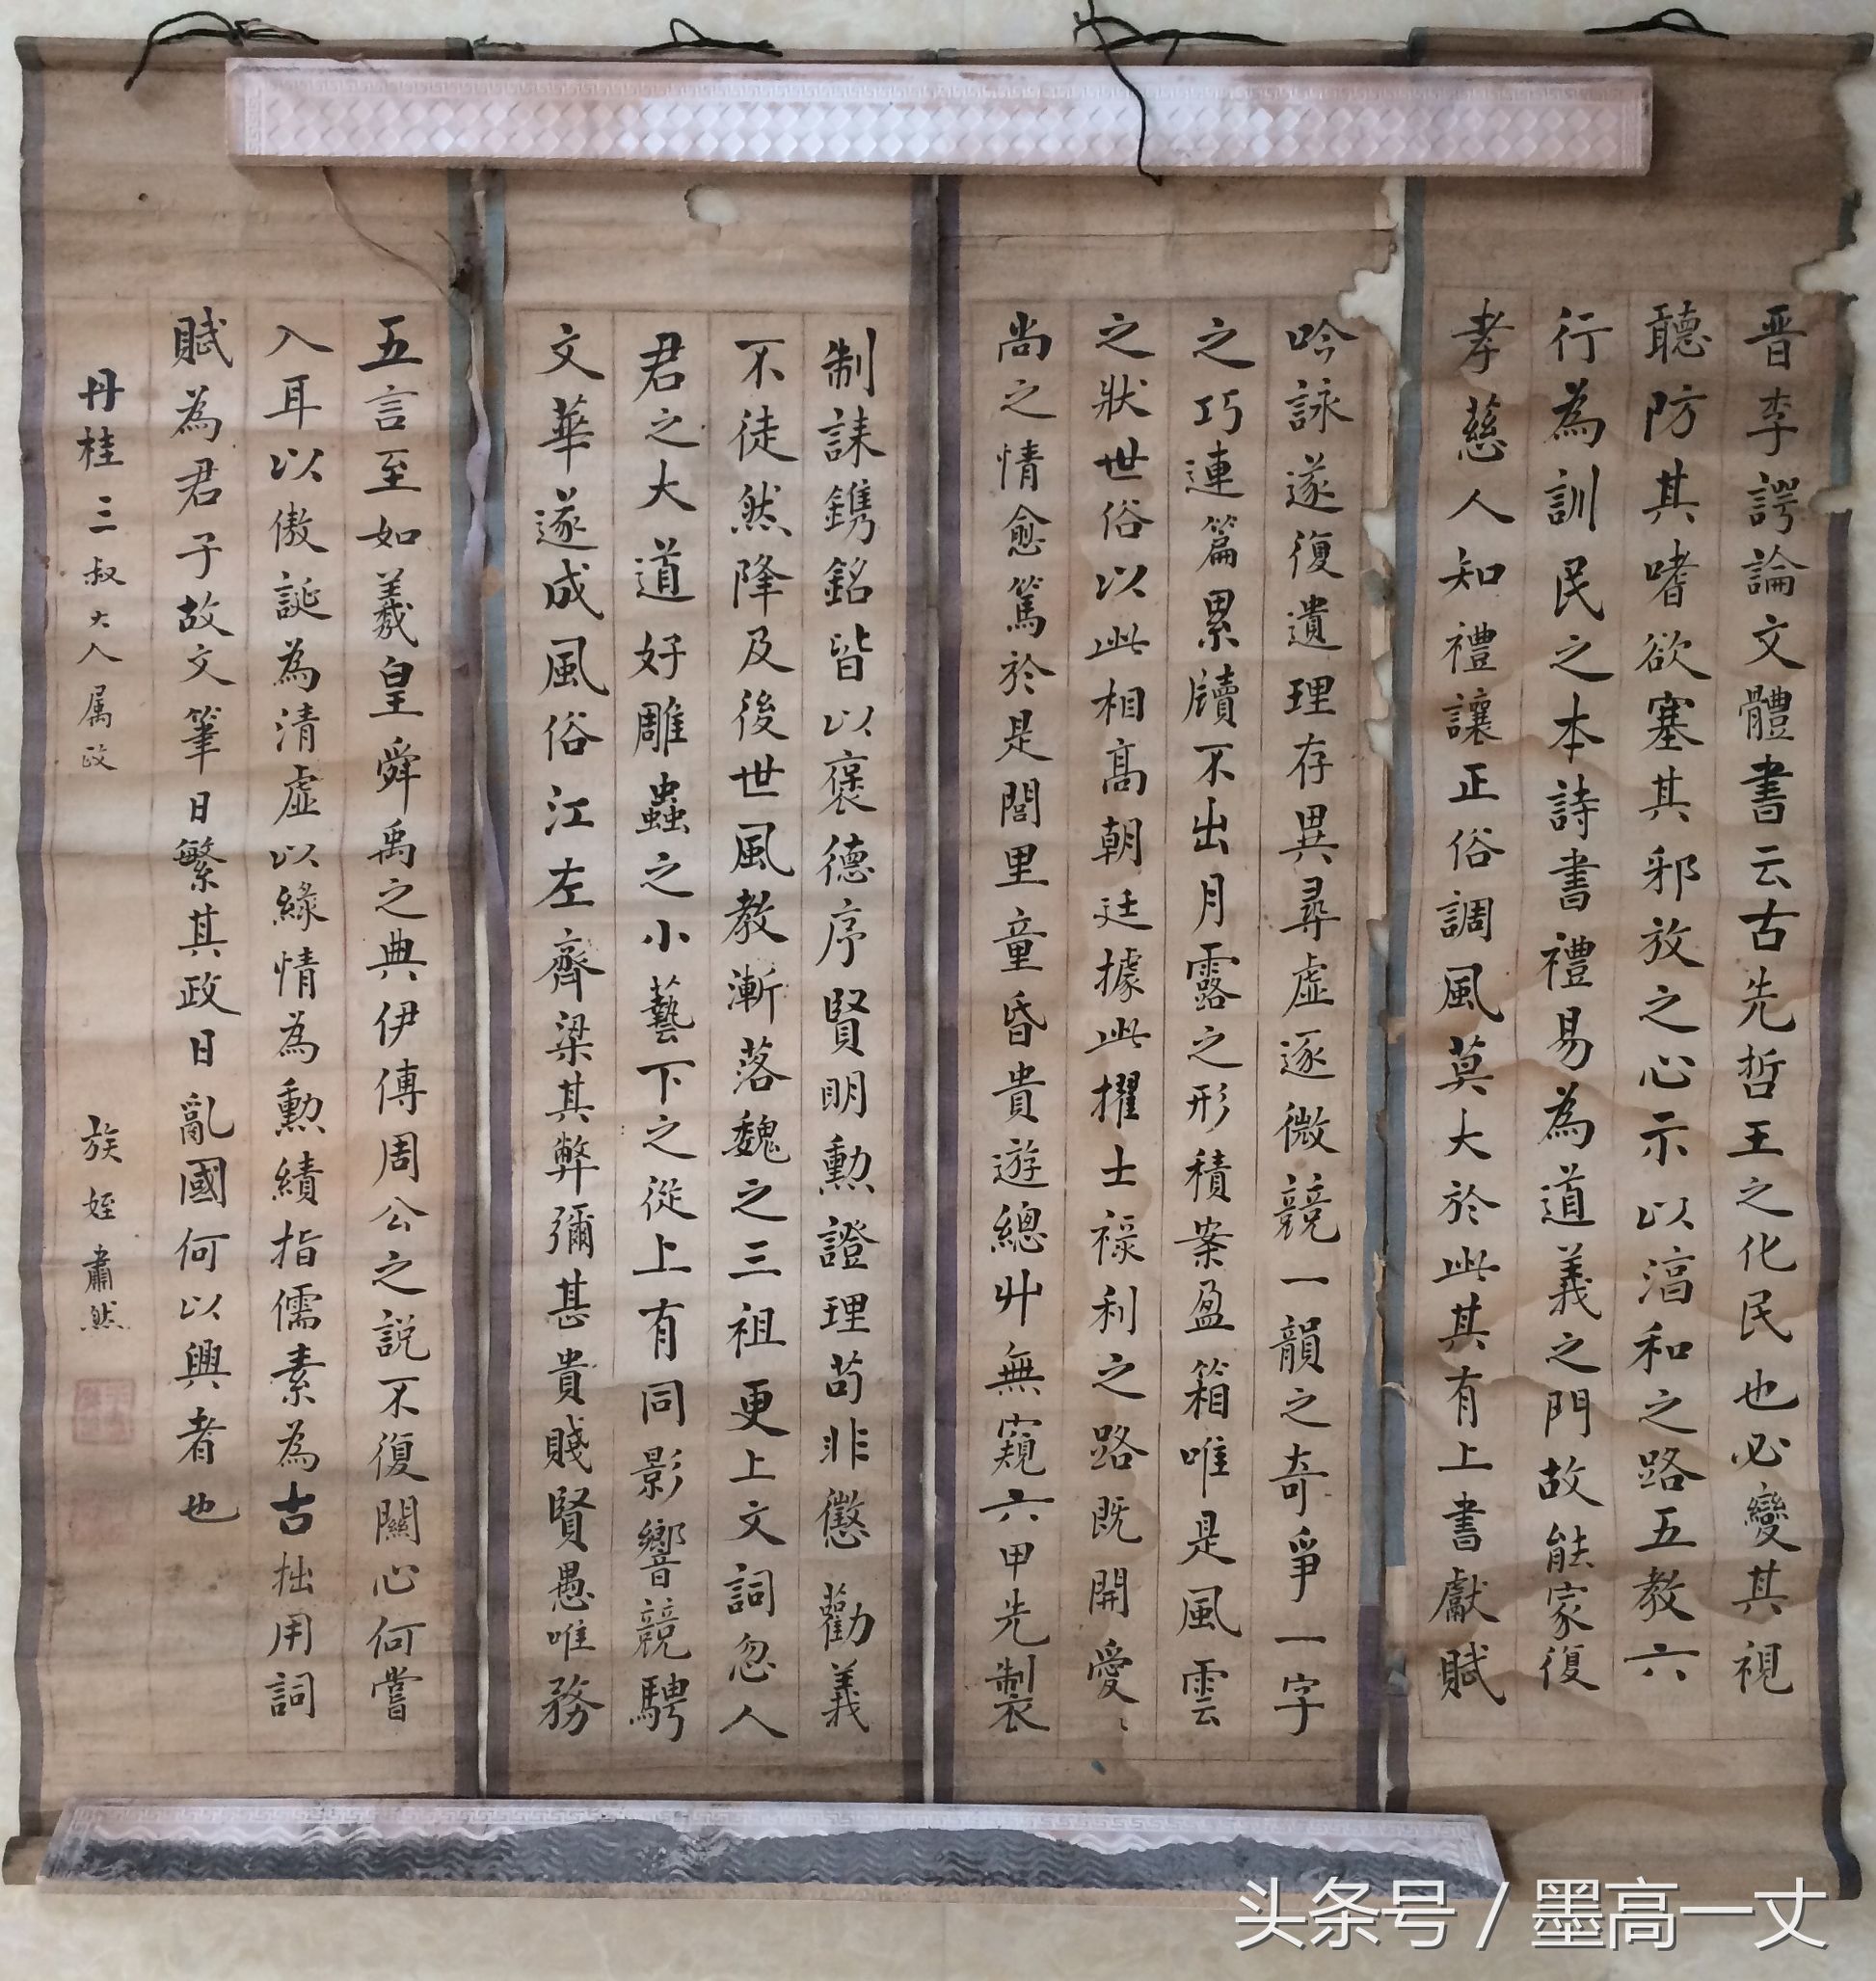 晋李諤論文體書云古先哲王之化民也必變其視
聽防其嗜欲塞其邪放之心示以淊和之路五教六
行為訓民之本詩書禮易為道義之門故能家復
孝慈人知禮讓正俗調風莫大於此其有上書獻賦
制誄鐫銘皆以褒德序賢明勲證理苟非懲勸義
不徒然降及後世風教漸落魏之三祖更上文詞忽人
君之大道好雕蟲之小藝下之從上有同影響競騁
文華遂成風俗江左齊梁其弊彌甚貴賤賢愚唯務
吟詠遂復遺理存異尋虛逐微競一韻之奇爭一字
之巧連篇累牘不出月露之形積案盈箱唯是風雲
之狀世俗以此相高朝廷據此擢士祿利之路既開愛
尚之情愈篤於是閭里童昏貴遊總丱無窺六甲先製
五言至如羲皇舜禹之典伊傅周公之說不復關心何嘗
入耳以傲誕為清虛以緣情為勲績指儒素為古拙用詞
賦為君子故文筆日繁其政日亂國何以興者也
丹桂三叔大人属政
族姪肅然
头条号 / 墨高一丈